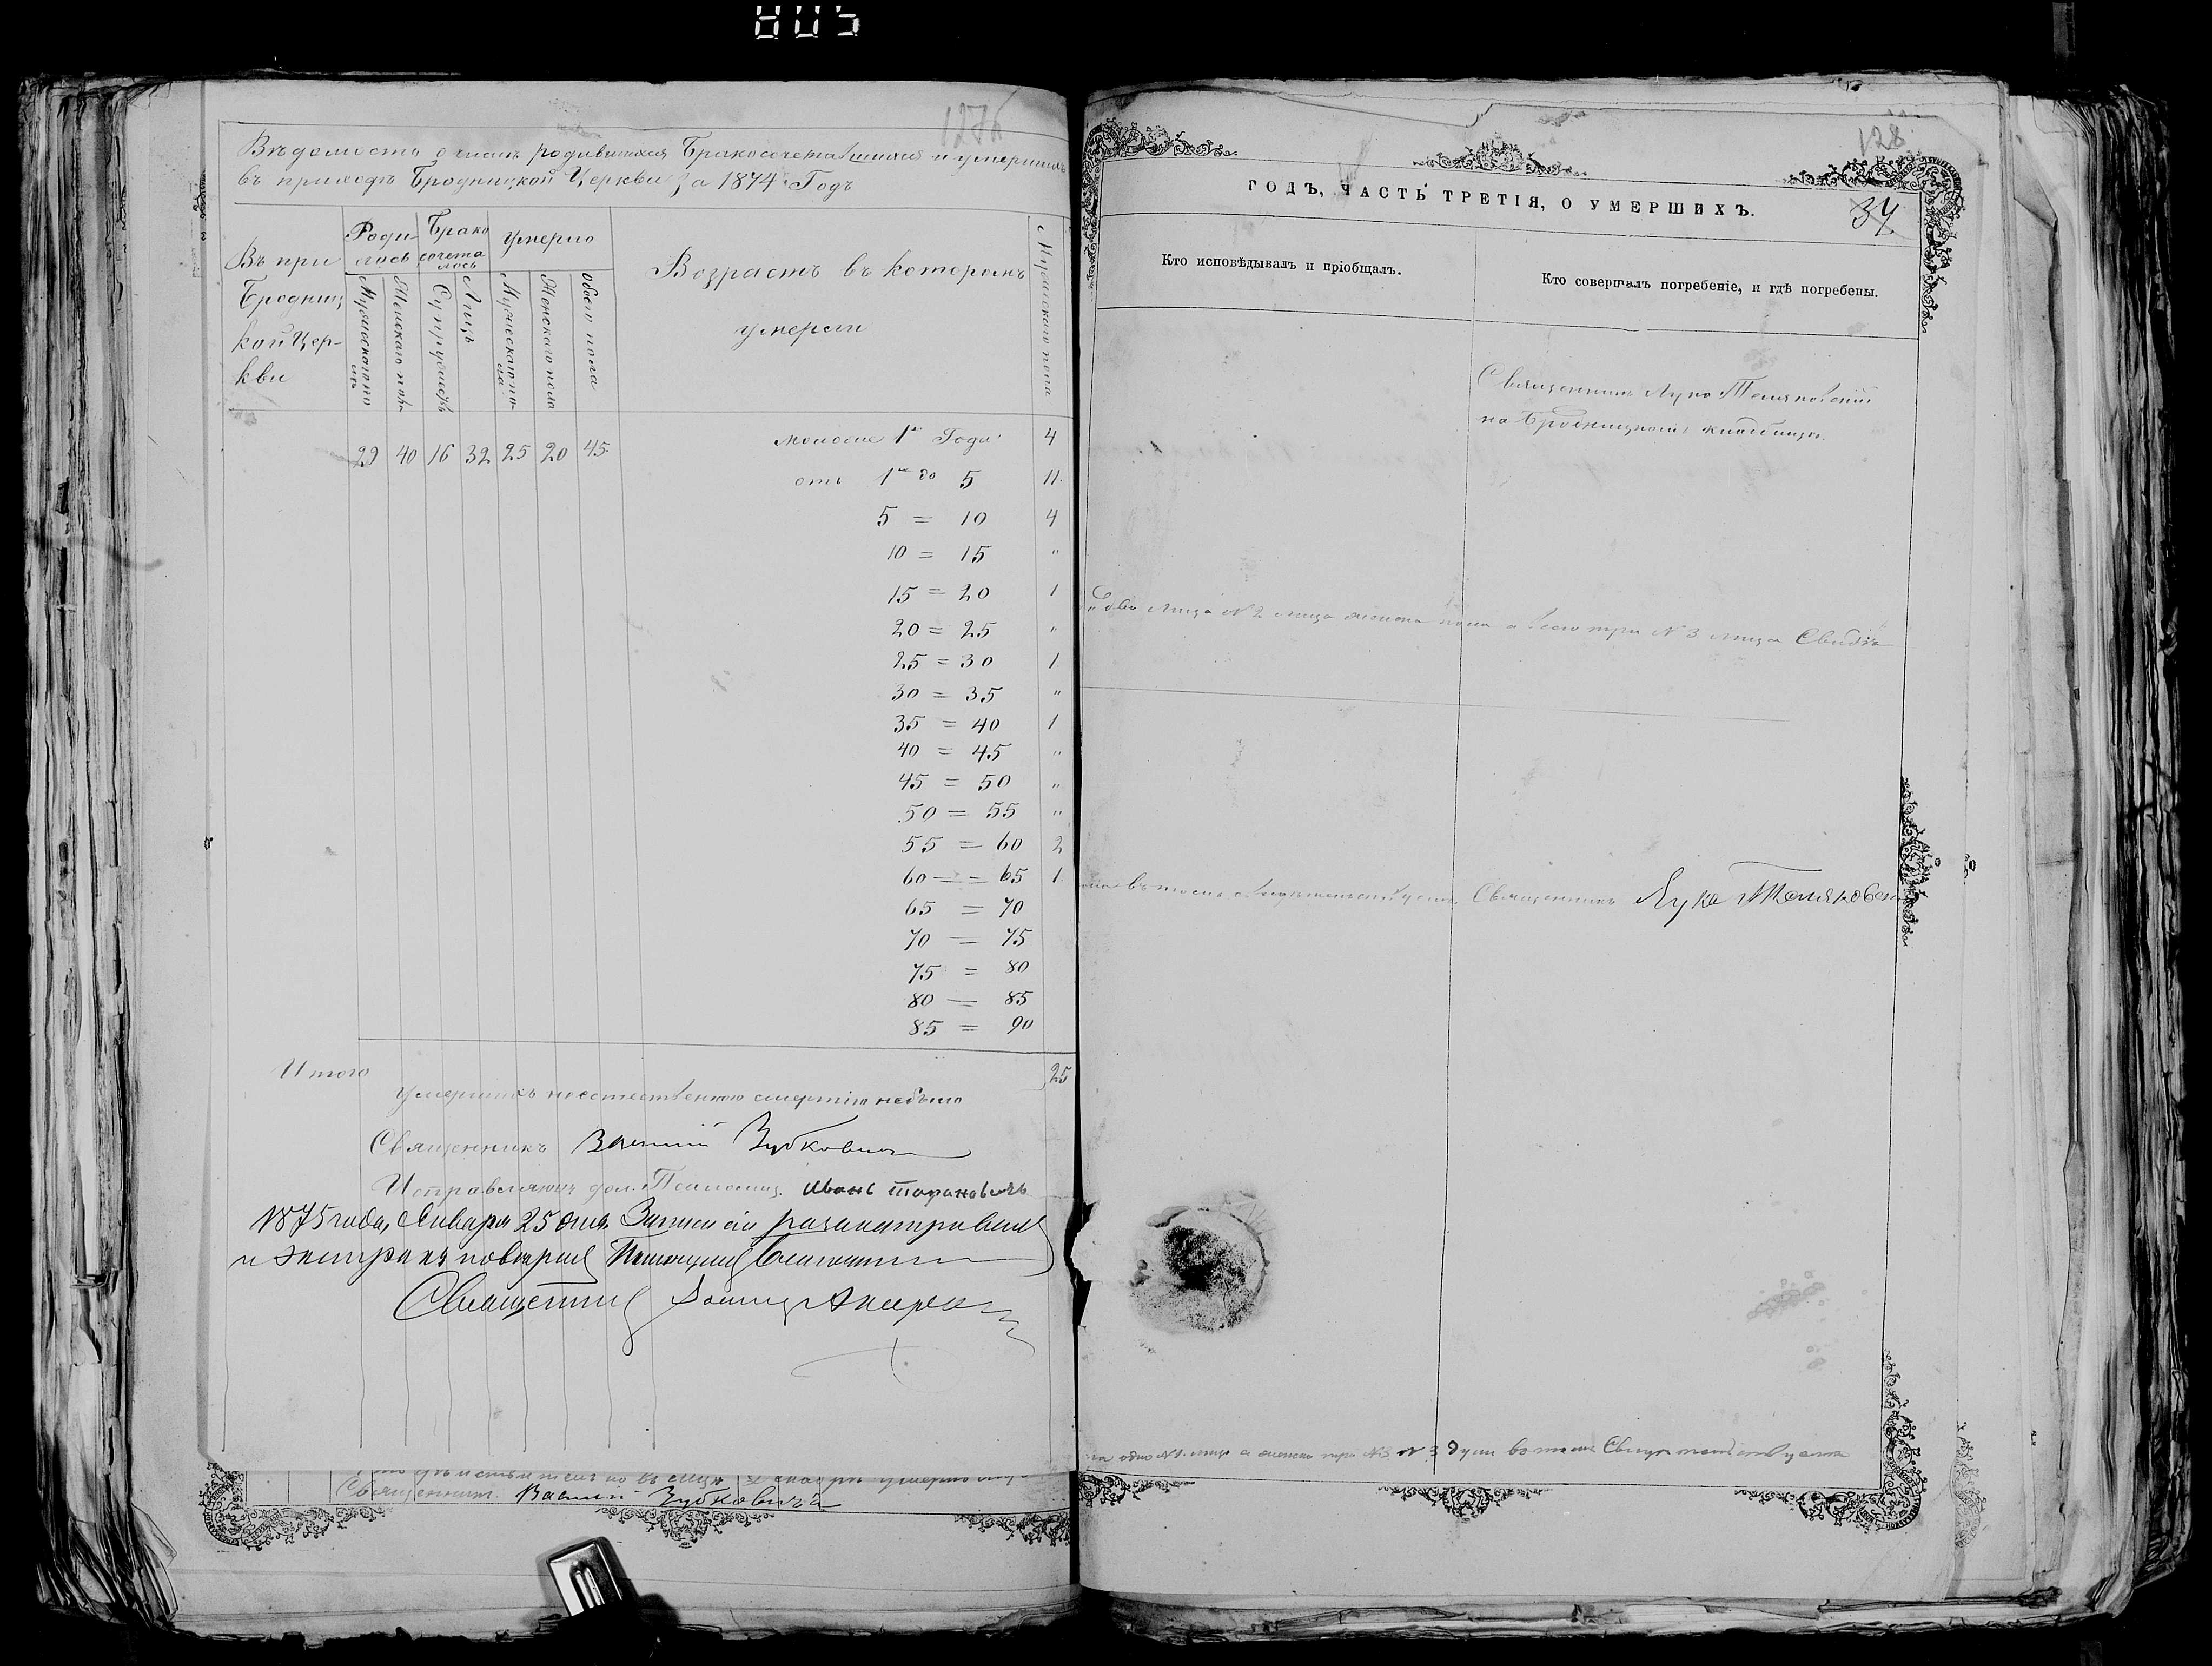 805
127
Вѣдомость о числѣ родившихся Бракосочетавшихся и умершихъ
въ приходѣ Бродницкой Церкви за 1874 Годъ
Въ при
Бродниц
кой Цер-
кви
Роди-
лось
Брако
сочета
лось
Умерло
Мужескаго по
ла
Женскаго пола
Супружествъ
Лицъ
Мужескаго по-
ла
Женскаго пола
Обоего пола
Возрастъ въ которомъ
умерли
Мужескаго пола
29 40 16 32 25 20 45
моложе 1го Года 4
отъ 1го до 5 11
5 = 10 4
10 = 15 "
15 = 20 1
20 = 25 "
25 = 30 1
30 = 35 "
35 = 40 1
40 = 45 "
45 = 50 "
50 = 55 "
55 = 60 2
60 = 65 1
65 = 70
70 = 75
75 = 80
80 = 85
85 = 90
Итого 25
Умершихъ неестественною смертію небыло
Священникъ Василій Зубковичъ
Исправляющ. дол. Псаломщ. Иванъ Тарановичъ
1875 года, Января 25 дня. Записи сіи разсматривалъ
и экстрактъ повѣрялъ
Священникъ
умерло
Священникъ Василій Зубковичъ
128
ГОДЪ, ЧАСТЬ ТРЕТІЯ, О УМЕРШИХЪ.
34
Кто исповѣдывалъ и пріобщалъ.
Кто совершалъ погребеніе, и гдѣ погребены.
Священникъ Лука Теляковскій
на Бродницкомъ кладбищѣ.
два лица N 2 лица женска пола а всего три N 3 лица
въ томъ свидѣтельствуемъ. Священникъ Лука Теляковскій
одно N 1. лице а женска три N 3 души въ томъ Свидѣтельствуемъ